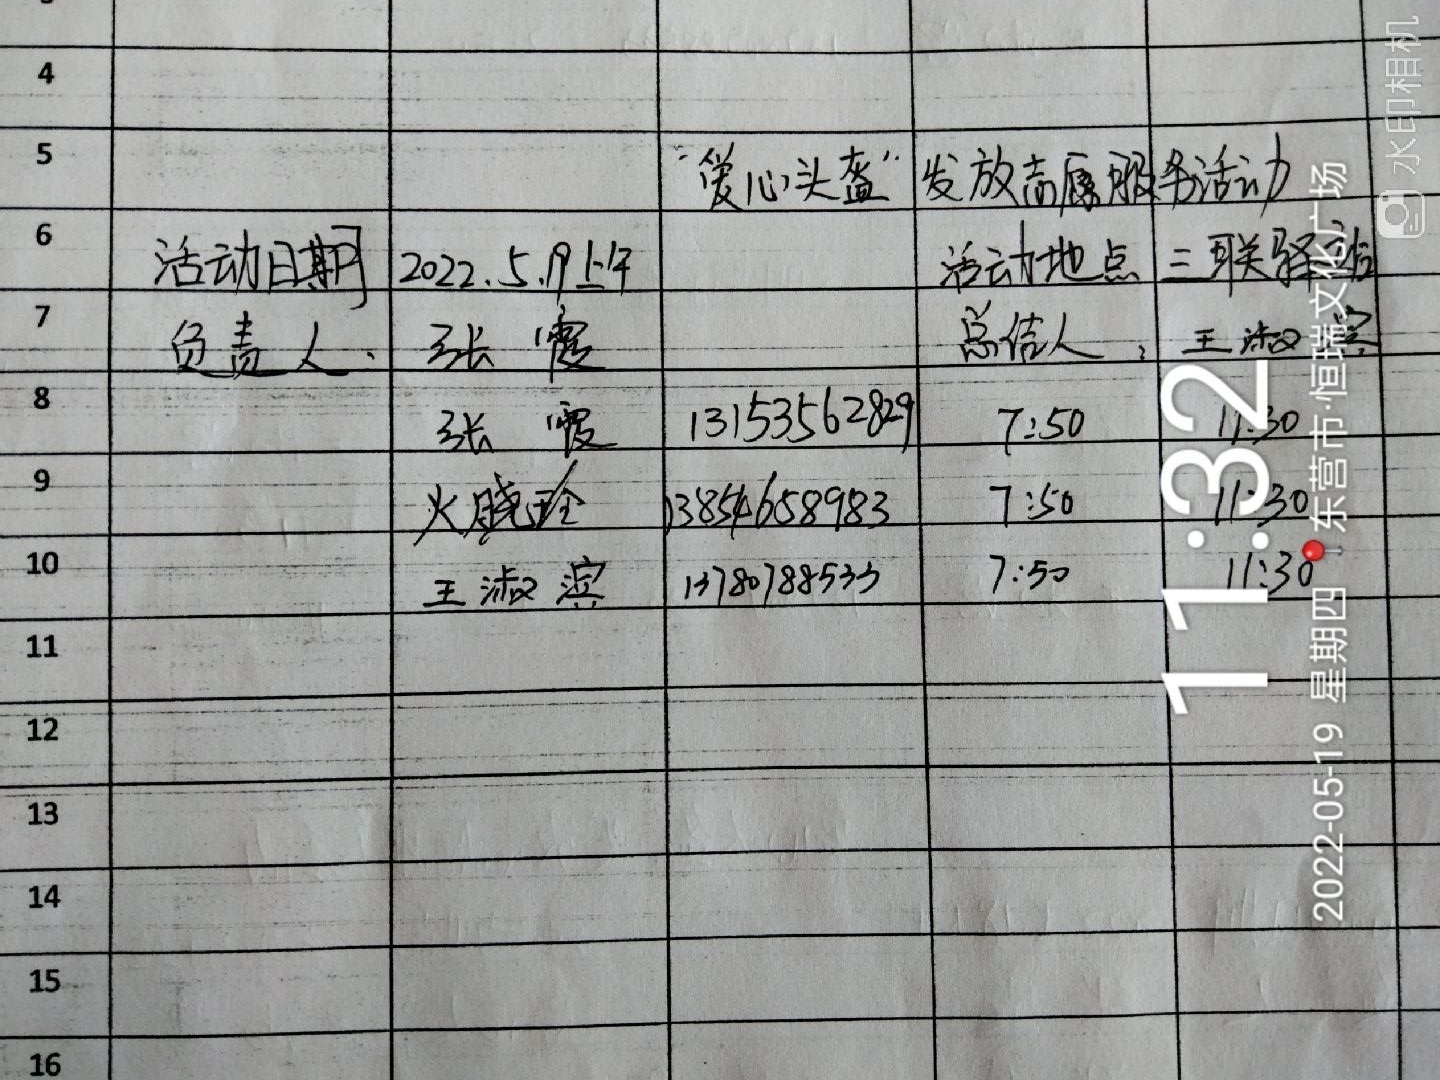 4
5 "爱心头盔"发放志愿服务活动
6 活动日期 2022.5.19上午 活动地点 三联驿站
7 负责人: 张霞 总结人: 王淑滨
8 张霞 13153562829 7:50 11:30
9 火晓玲 13854658983 7:50 11:30
10 王淑滨 13780788533 7:50 11:30
11
12
13
14
15
16
水印相机
11:32
2022-05-19 星期四 东营市·恒瑞文化广场